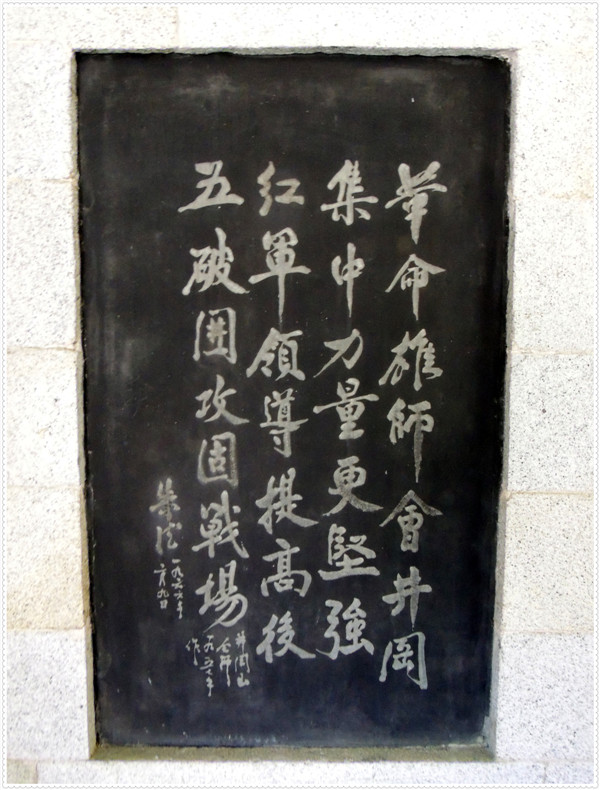 革命雄師會井岡
集中力量更堅強
紅軍領導提高後
五破囲攻固戰場
井岡山
会師
一九五七年
作
朱德
一九六六年
二月九日